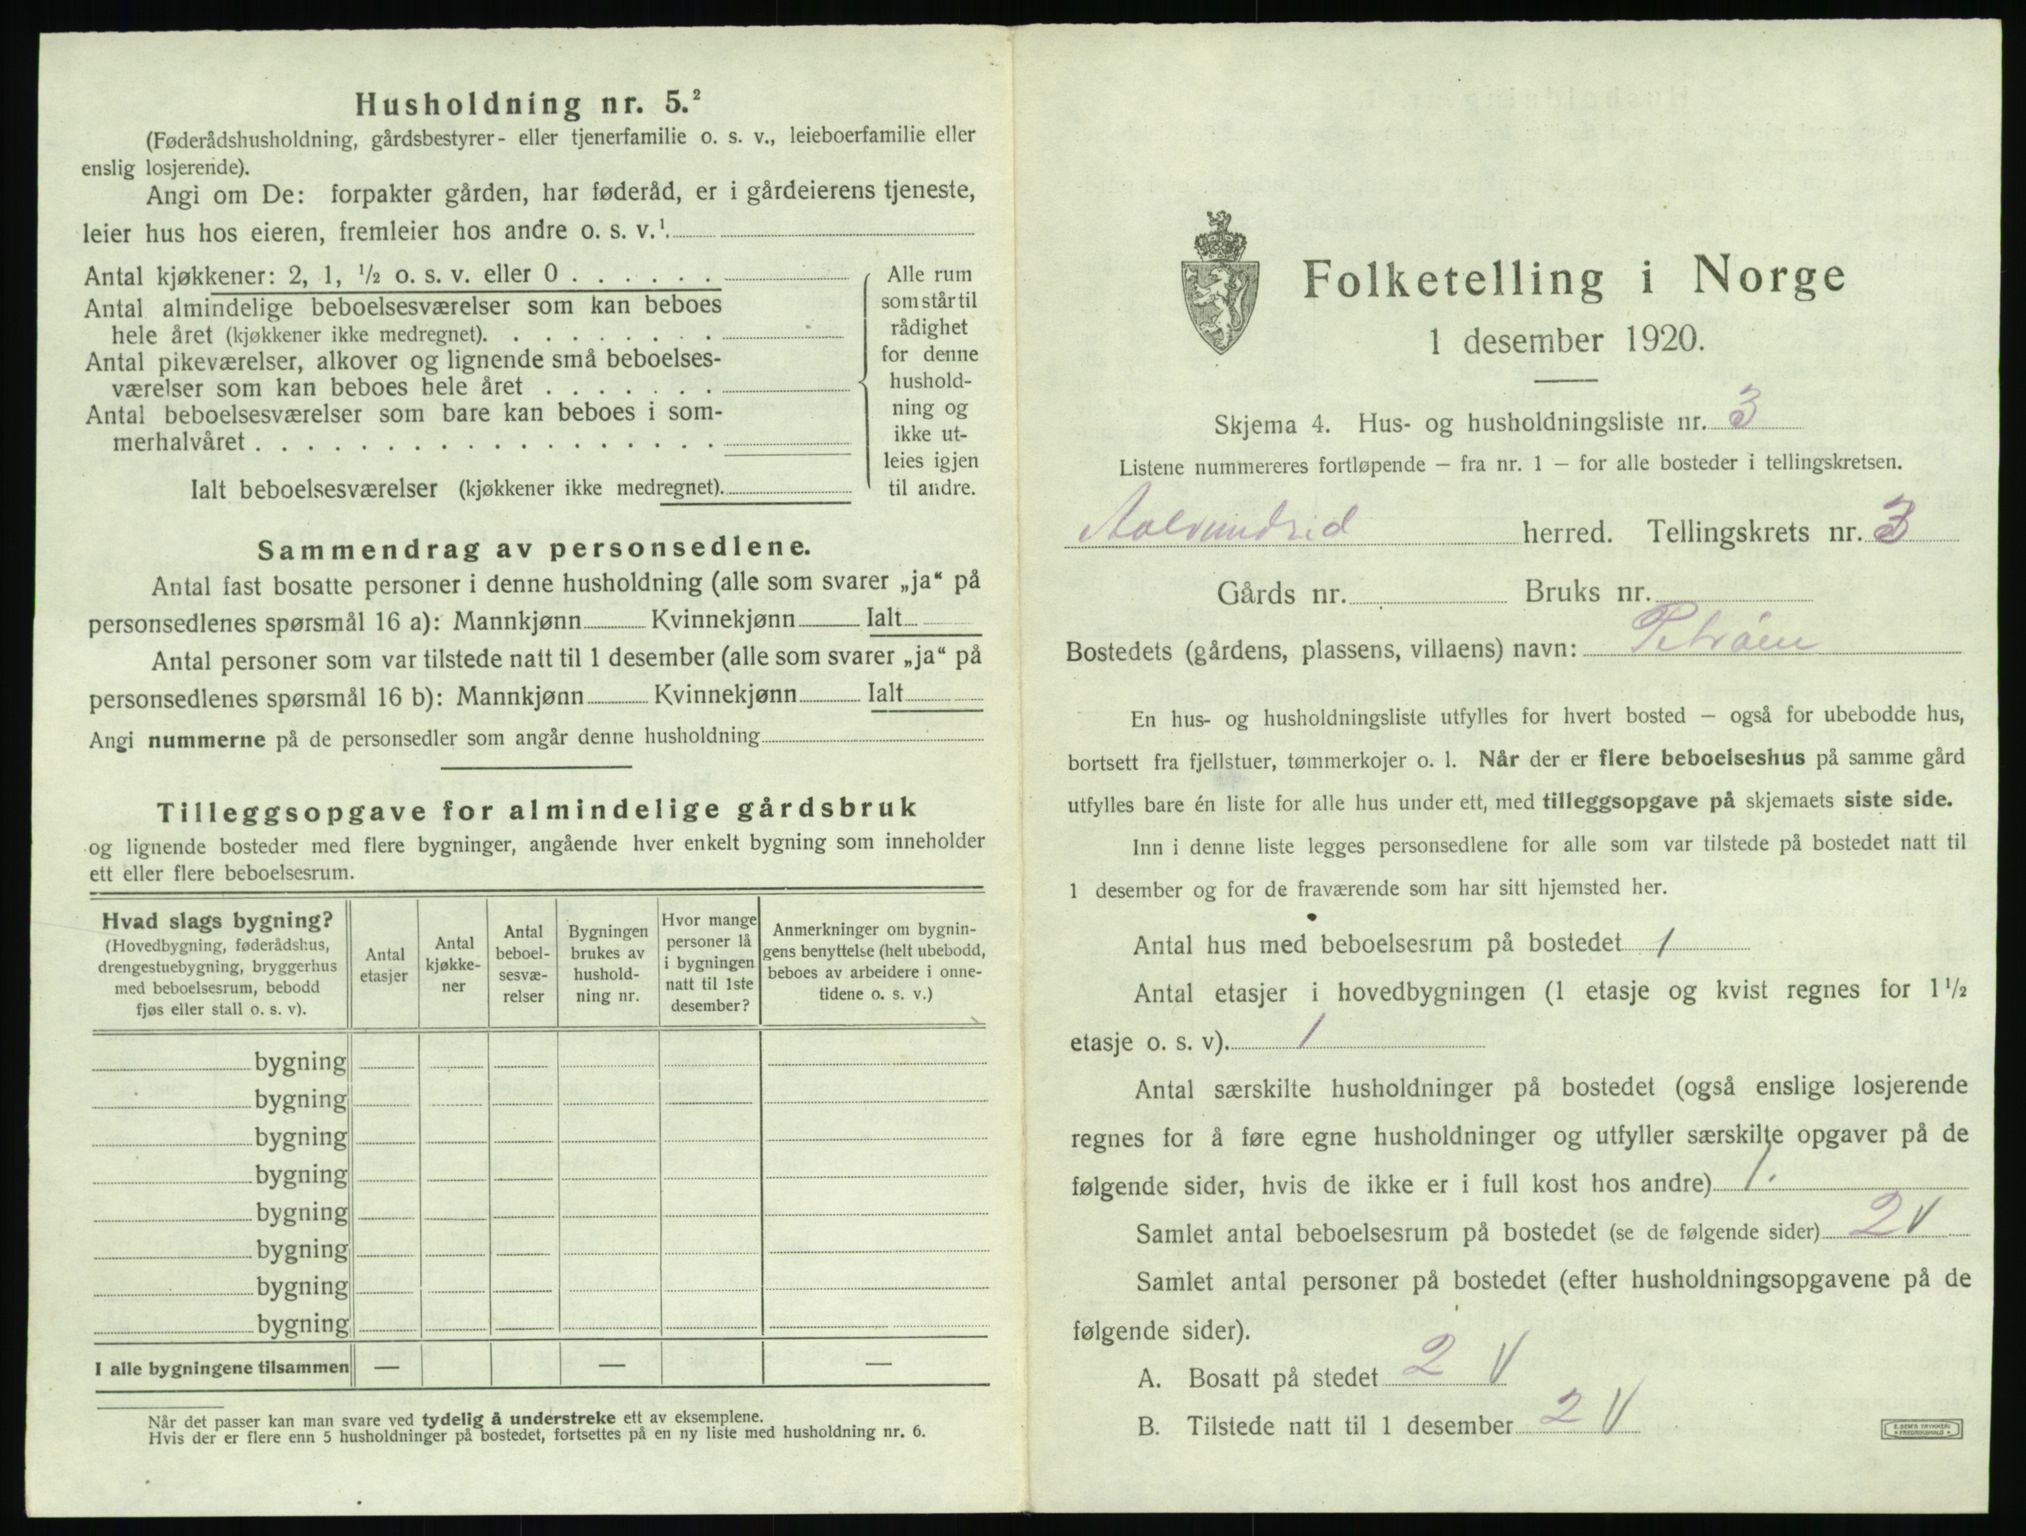 Husholdning nr. 5.²
(Føderådshusholdning, gårdsbestyrer- eller tjenerfamilie o. s. v., leieboerfamilie eller
enslig losjerende).
Angi om De: forpakter gården, har føderåd, er i gårdeierens tjeneste,
leier hus hos eieren, fremleier hos andre o. s. v.¹.
Antal kjøkkener: 2, 1, ½ o. s. v. eller 0
Antal almindelige beboelsesværelser som kan beboes
hele året (kjøkkener ikke medregnet).
Antal pikeværelser, alkover og lignende små beboelses-
værelser som kan beboes hele året
Antal beboelsesværelser som bare kan beboes i som-
merhalvåret
Ialt beboelsesværelser (kjøkkener ikke medregnet).
Alle rum
som står til
rådighet
for denne
hushold-
ning og
ikke ut-
leies igjen
til andre.
Sammendrag av personsedlene.
Antal fast bosatte personer i denne husholdning (alle som svarer „ja“ på
personsedlenes spørsmål 16 a): Mannkjønn Kvinnekjønn Ialt
Antal personer som var tilstede natt til 1 desember (alle som svarer „ja“ på
personsedlenes spørsmål 16 b): Mannkjønn Kvinnekjønn Ialt
Angi nummerne på de personsedler som angår denne husholdning
Tilleggsopgave for almindelige gårdsbruk
og lignende bosteder med flere bygninger, angående hver enkelt bygning som inneholder
ett eller flere beboelsesrum.
Hvad slags bygning?
(Hovedbygning, føderådshus,
drengestuebygning, bryggerhus
med beboelsesrum, bebodd
fjøs eller stall o. s. v).
Antal
etasjer
Antal
kjøkke-
ner
Antal
beboel-
sesvæ-
relser
Bygningen
brukes av
hushold-
ning nr.
Hvor mange
personer lå
i bygningen
natt til 1ste
desember?
Anmerkninger om bygnin-
gens benyttelse (helt ubebodd,
beboes av arbeidere i onne-
tidene o. s. v.)
bygning
bygning
bygning
bygning
bygning
bygning
bygning
bygning
I alle bygningene tilsammen — — —
Når det passer kan man svare ved tydelig å understreke ett av eksemplene.
Hvis der er flere enn 5 husholdninger på bostedet, fortsettes på en ny liste med husholdning nr. 6.
Folketelling i Norge
1 desember 1920.
Skjema 4. Hus- og husholdningsliste nr. 3
Listene nummereres fortløpende – fra nr. 1 – for alle bosteder i tellingskretsen.
herred. Tellingskrets nr. 3
Gårds nr. Bruks nr.
Bostedets (gårdens, plassens, villaens) navn: Petrøen
En hus- og husholdningsliste utfylles for hvert bosted – også for ubebodde hus,
bortsett fra fjellstuer, tømmerkojer o. l. Når der er flere beboelseshus på samme gård
utfylles bare én liste for alle hus under ett, med tilleggsopgave på skjemaets siste side.
Inn i denne liste legges personsedlene for alle som var tilstede på bostedet natt til
1 desember og for de fraværende som har sitt hjemsted her.
Antal hus med beboelsesrum på bostedet 1
Antal etasjer i hovedbygningen (1 etasje og kvist regnes for 1½
etasje o. s. v). 1
Antal særskilte husholdninger på bostedet (også enslige losjerende
regnes for å føre egne husholdninger og utfyller særskilte opgaver på de
følgende sider, hvis de ikke er i full kost hos andre) 1.
Samlet antal beboelsesrum på bostedet (se de følgende sider) 2 V
Samlet antal personer på bostedet (efter husholdningsopgavene på de
følgende sider).
A. Bosatt på stedet 2 V
B. Tilstede natt til 1 desember 2 V